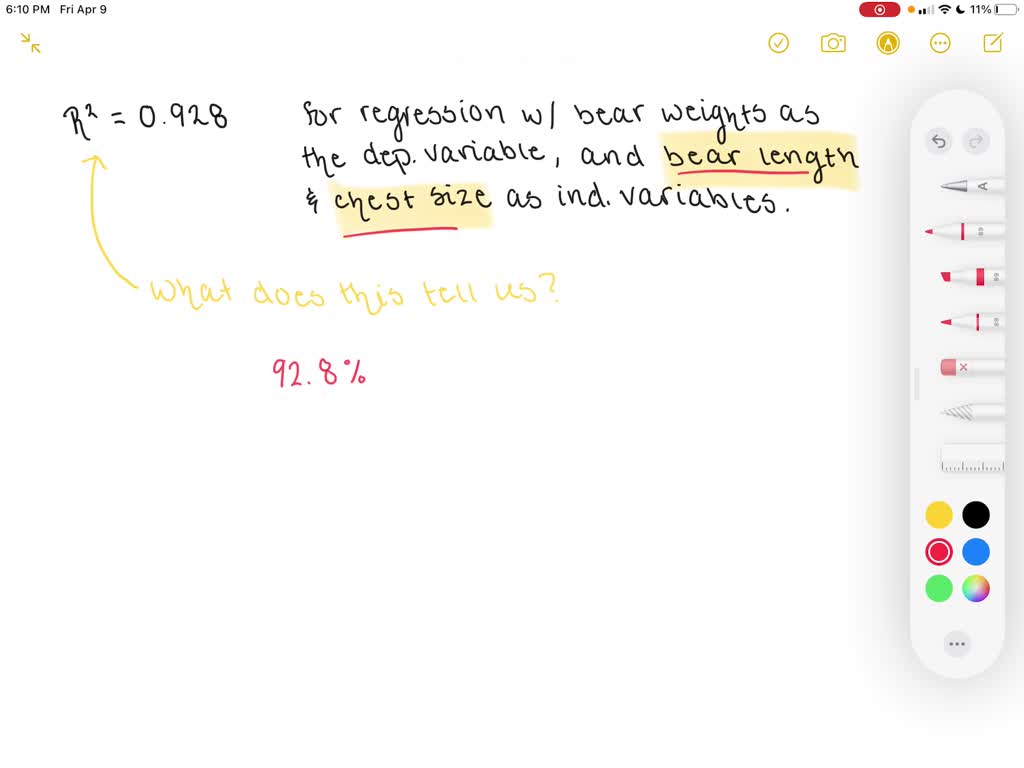 6:10 PM Fri Apr 9 11%
R² = 0.928
for regression w/ bear weights as
the dep. variable, and bear length
& chest size as ind. variables.
What does this tell us?
92.8%
A